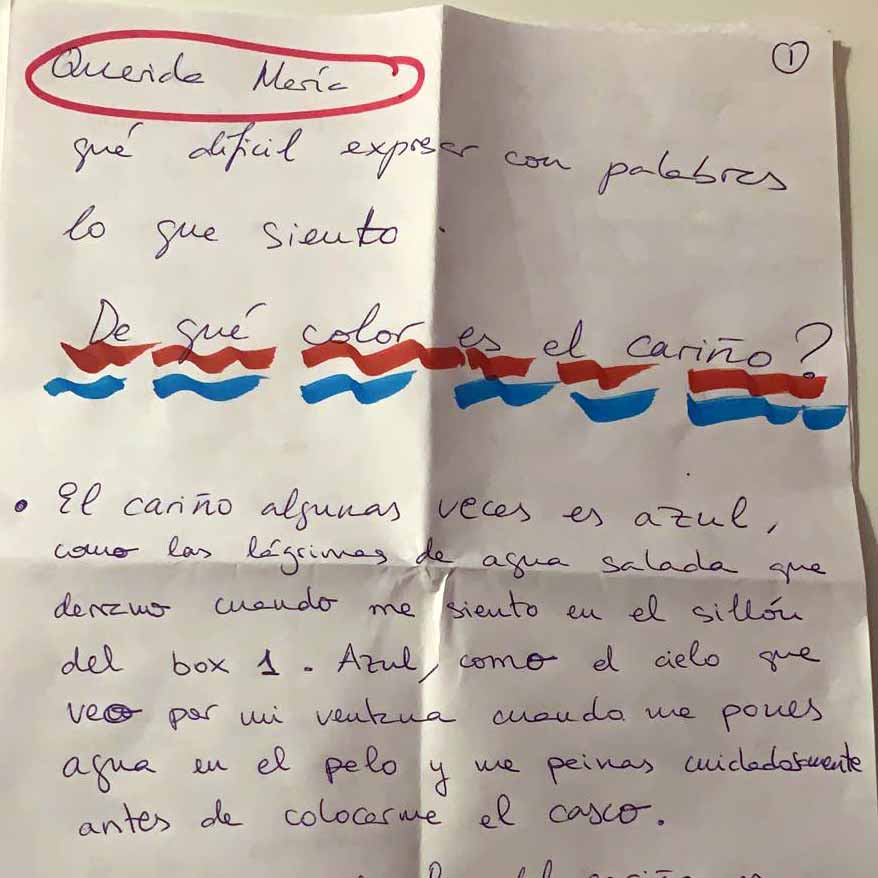 Querida María
1
qué difícil expresar con palabras
lo que siento.
De qué color es el cariño?
• El cariño algunas veces es azul,
como las lágrimas de agua salada que
derramo cuando me siento en el sillón
del box 1. Azul, como el cielo que
veo por mi ventana cuando me pones
agua en el pelo y me peinas cuidadosamente
antes de colocarme el casco.